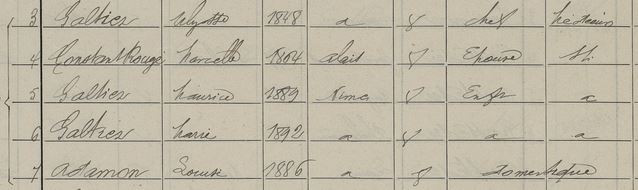 3 Galtier Ulysse 1848 a f chef médecin
4 Constant Rouge Marcelle 1864 Alais f Epouse
5 Galtier Maurice 1889 Nimes f Enft a
6 Galtier Marie 1892 a f a a
7 Adamon Louise 1886 a f domestique